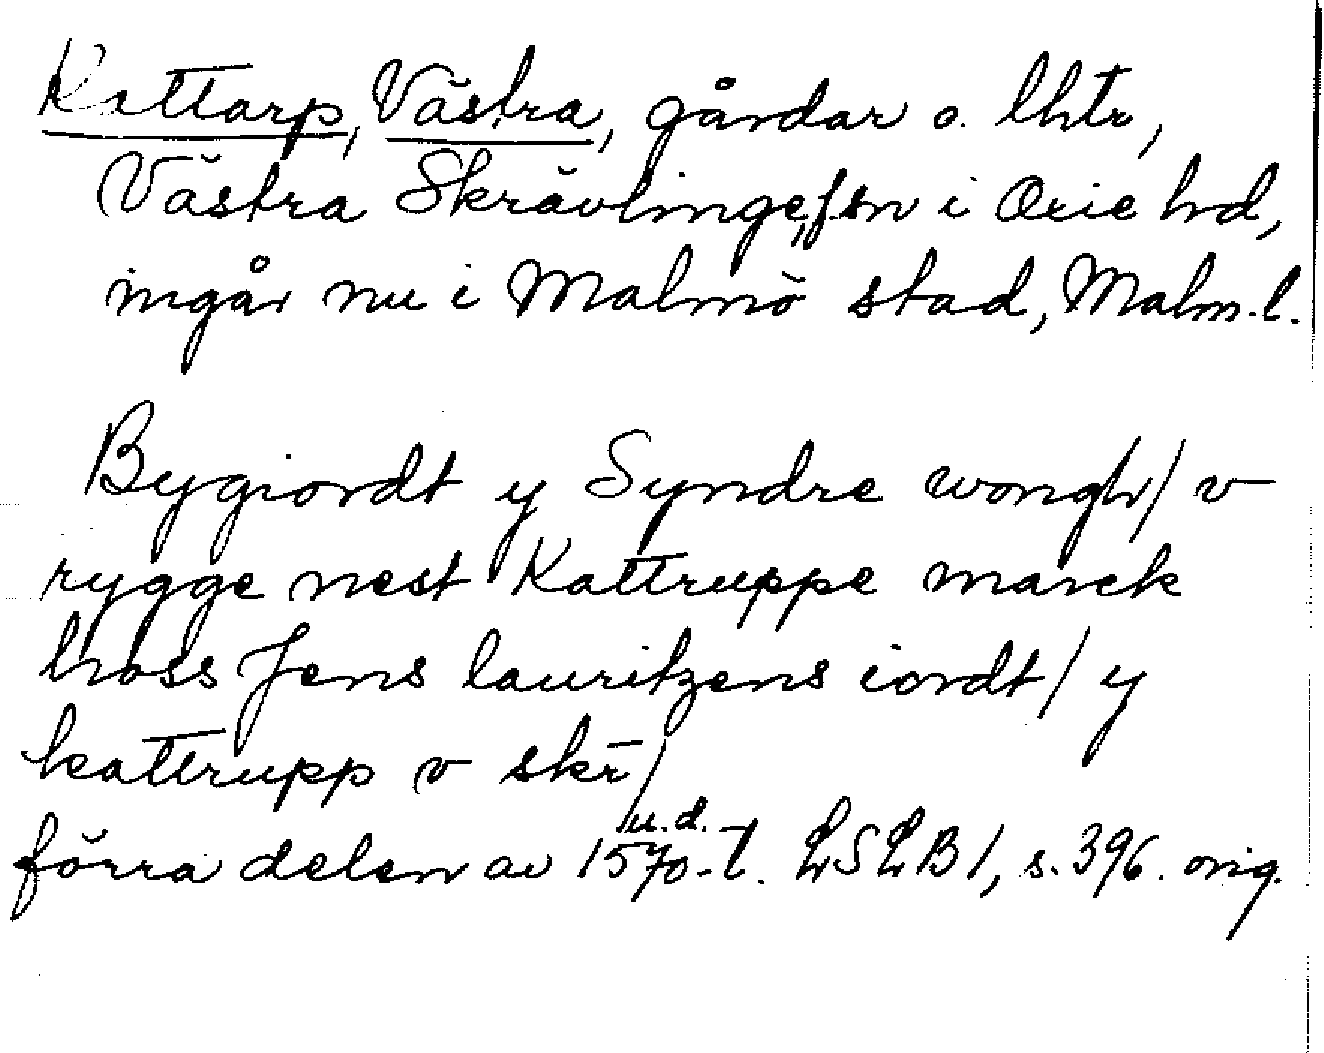 Kattarp, Västra, gårdar o. lhtr,
Västra Skrävlinge, fsn i Oxie hd,
ingår nu i Malmö stad, Malm. l.
Bygiordt y Syndre wongh/ v
rygge nest Kattruppe marck
hoss Jens lauritzens iordt/ y
kattrupp v skr/
u.d.
förra delen av 1570-t. LSLB 1, s. 396. orig.